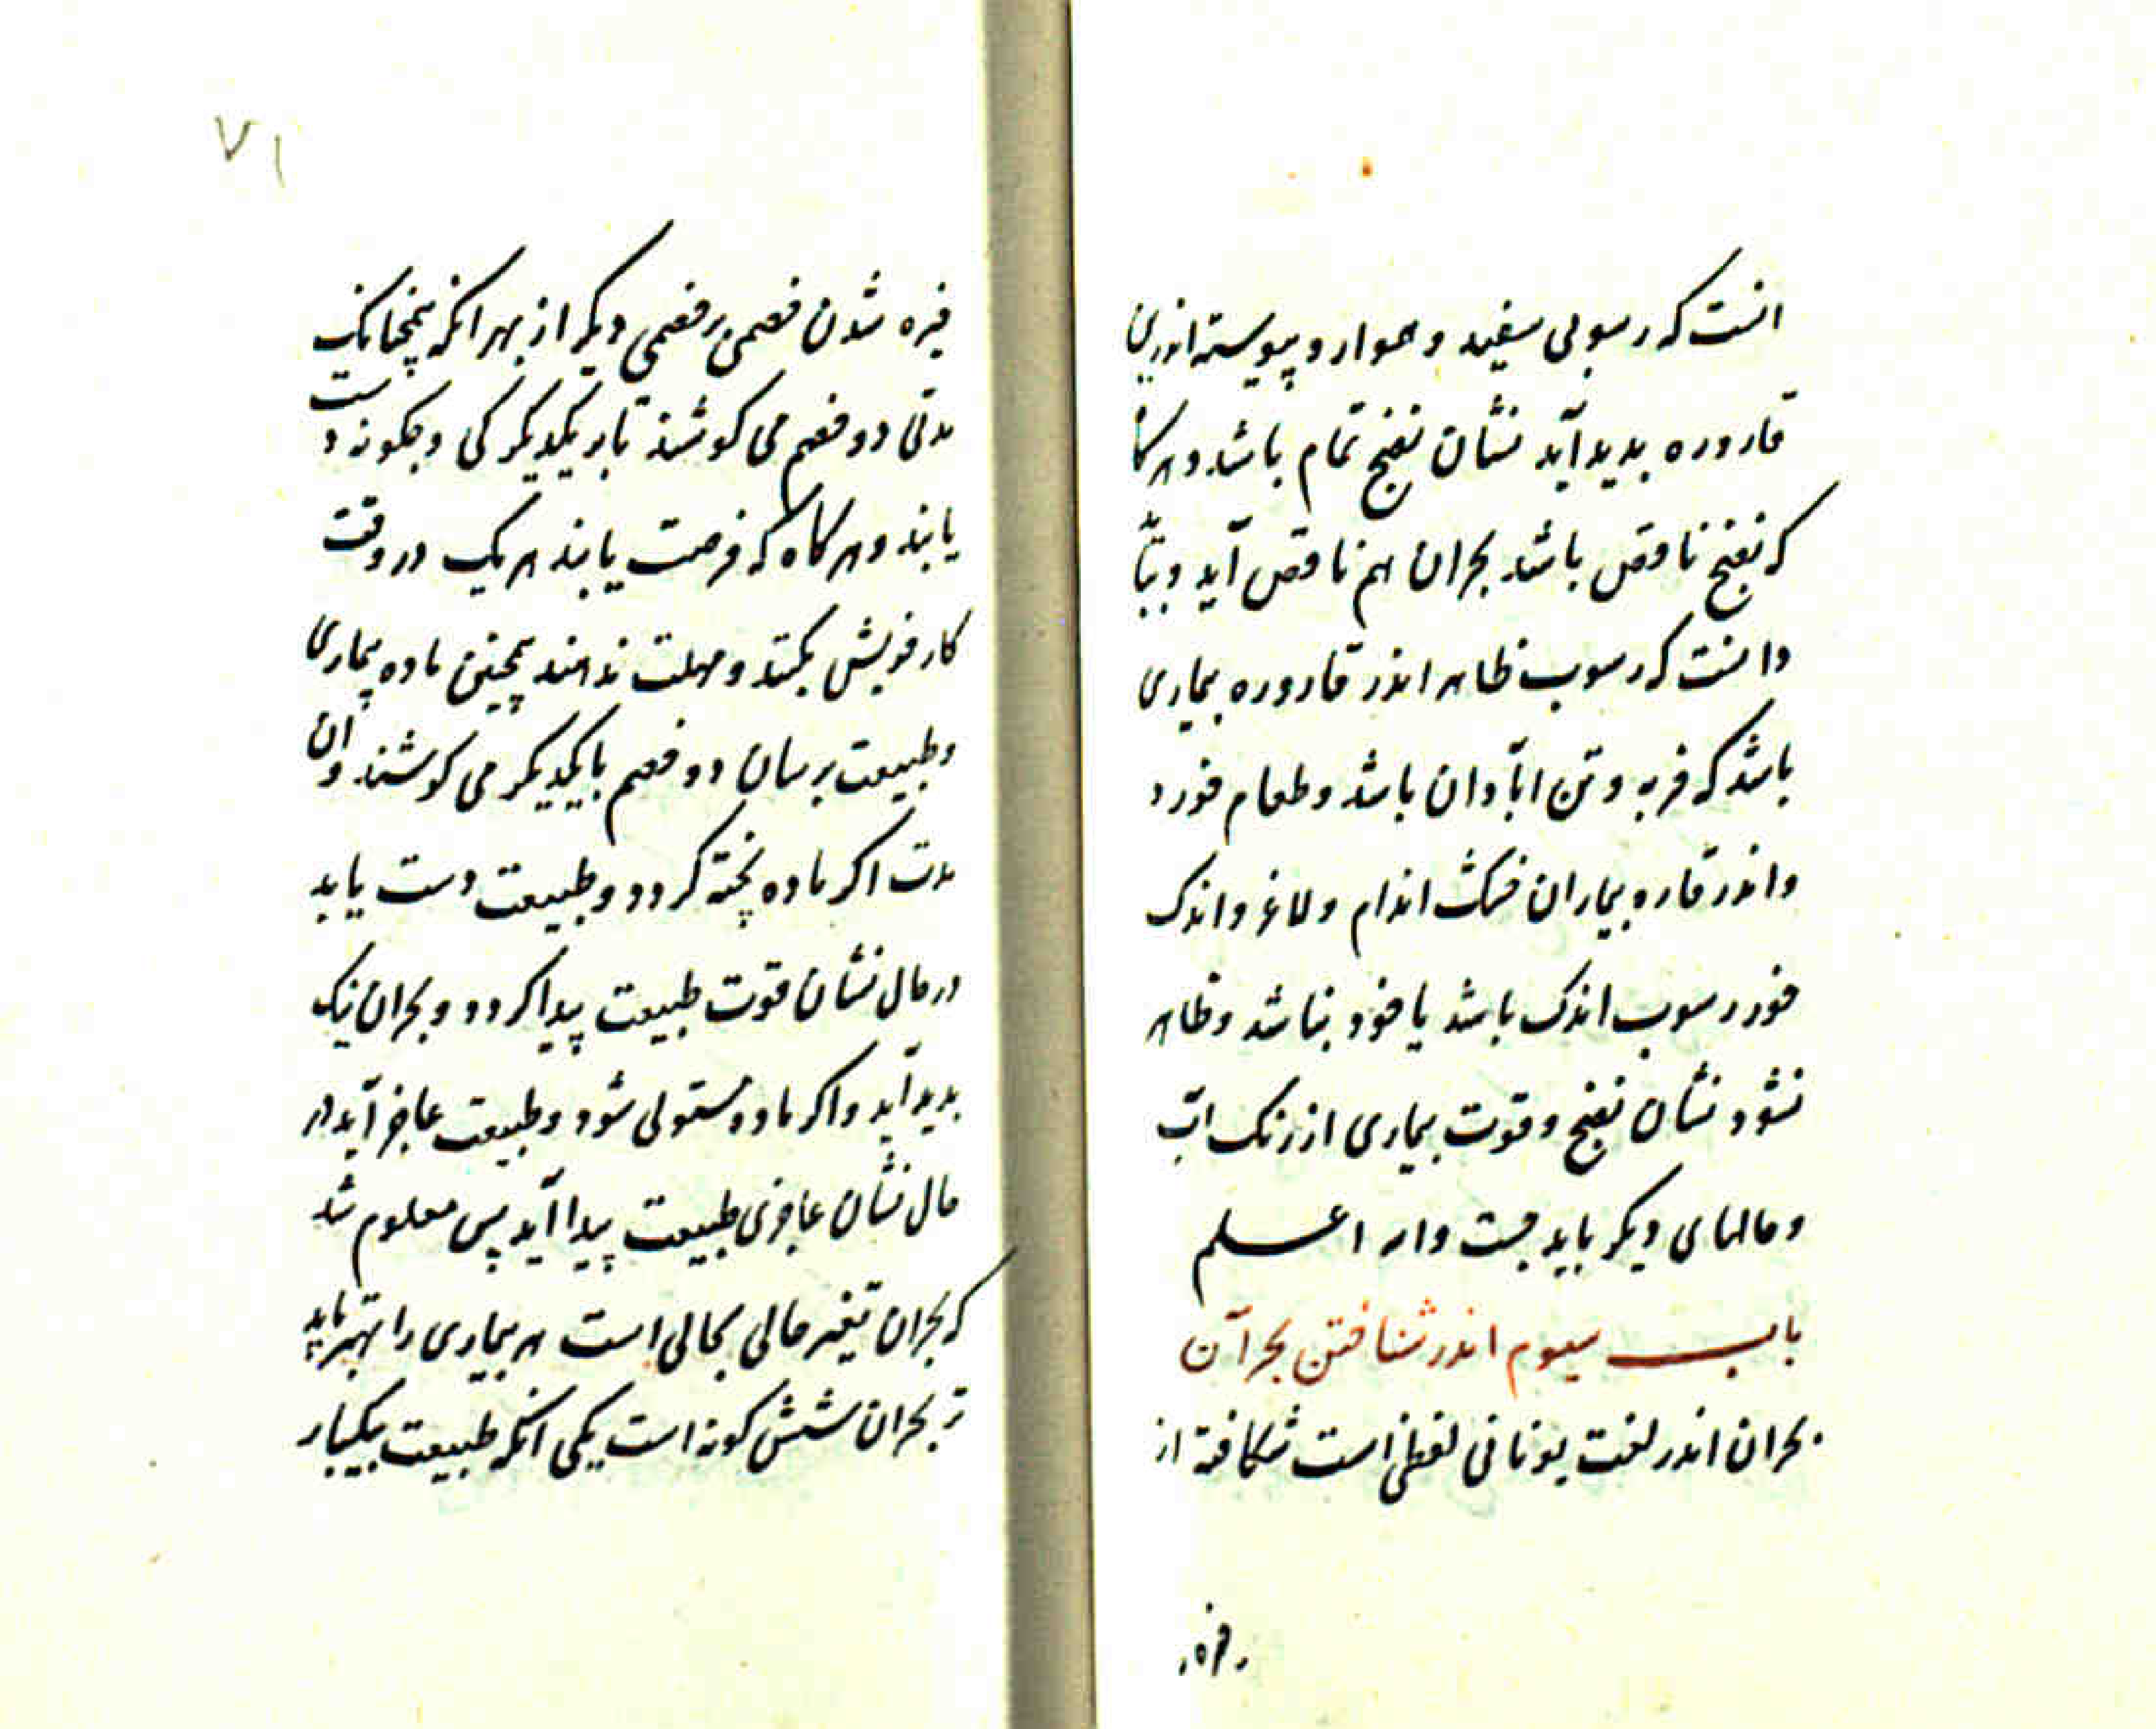 انست که رسوبی سفید و هموار و پیوسته اندرین
قاروره بدید آید نشان نضج تمام باشد و هرکا
که نضج ناقص باشد بحران هم ناقص آید و بباید
دانست که رسوب ظاهر اندر قاروره بیماری
باشد که فربه و تن اباّدان باشد و طعام خورد
و اندر قاره بیماران خشک اندام و لاغر و اندک
خور رسوب اندک باشد یا خود نباشد و ظاهر
نشود نشان نضج و قوت بیماری از رنک آب
و حالهای دیکر باید جست والله اعلم
باب سیوم اندر شناختن بحرآن
بحران اندر لغت یونانی لفظی است شکافته از
خیره
۷۱
خیره شدن خصمی بر خصمی دیکر از بهر انکه همچنانک
مدتی دو خصم می کوشند تا بر یکدیکر کی و چکونه دست
یابند و هرکاه که فرصت یابند هر یک در وقت
کار خویش بکنند و مهلت ندهند همچنین ماده بیماری
و طبیعت برسان دو خصم با یکدیکر می کوشند و ان
مدت اکر ماده پخته کردد و طبیعت دست یابد
در حال نشان قوت طبیعت پیدا کردد و بحران نیک
بدید آید و اکر ماده مستولی شود و طبیعت عاجز آید در
حال نشان عاجزی طبیعت پیدا آید پس معلوم شد
که بحران تغیر حالی بحالی است هر بیماری را بهتر یا بد
تر بحران شش کونه است یکی انکه طبیعت بیکبار